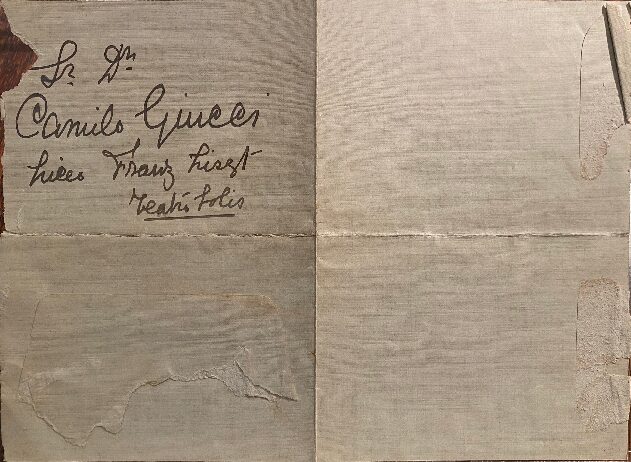 Sr. Dn.
Camilo Giucci
Liceo Franz Liszt
Teatro Solis